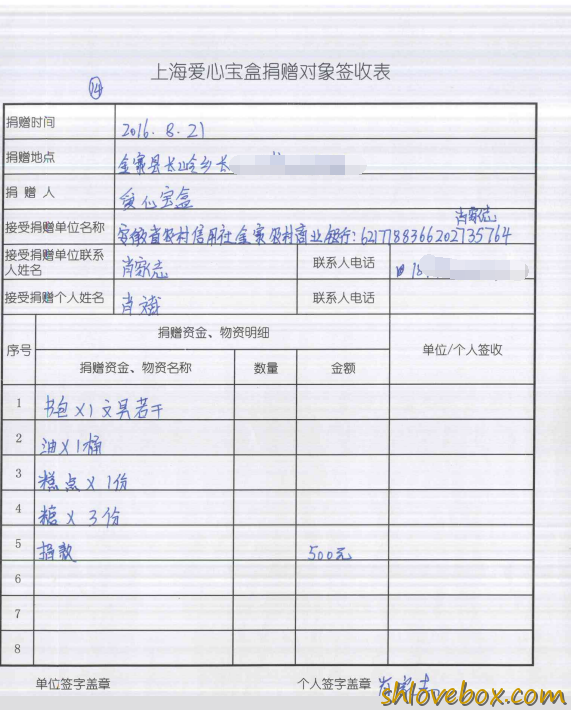 上海爱心宝盒捐赠对象签收表
14
捐赠时间 2016. 8. 21
捐赠地点 金寨县长岭乡长
捐 赠 人 爱心宝盒
肖家志
接受捐赠单位名称 安徽省农村信用社金寨农村商业银行: 6217788366202735764
接受捐赠单位联系人姓名 肖家志 联系人电话 18
接受捐赠个人姓名 肖斌 联系人电话
序号 捐赠资金、物资明细 单位/个人签收
捐赠资金、物资名称 数量 金额
1 书包X1 文具若干
2 油X1桶
3 糕点X1份
4 糖X3份
5 捐款 500元
6
7
8
单位签字盖章 个人签字盖章 肖家志
shlovebox.com